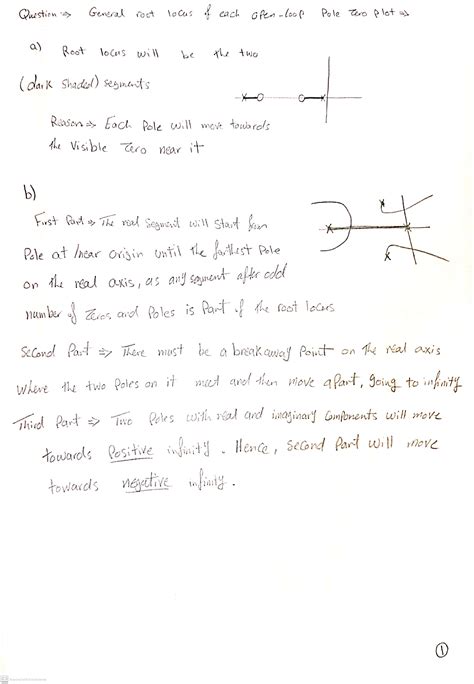 Question ⇒ General root locus of each open-loop Pole Zero plot ⇒
a) Root locus will be the two
(dark shaded) segments
Reason ⇒ Each Pole will move towards
the visible Zero near it
b)
First Part ⇒ The real segment will start from
Pole at/near origin until the farthest Pole
on the real axis, as any segment after odd
number of Zeros and Poles is Part of the root locus
Second Part ⇒ There must be a breakaway Point on the real axis
where the two Poles on it meet and then move apart, going to infinity
Third Part ⇒ Two Poles with real and imaginary Components will move
towards Positive infinity. Hence, Second Part will move
towards negative infinity.
1